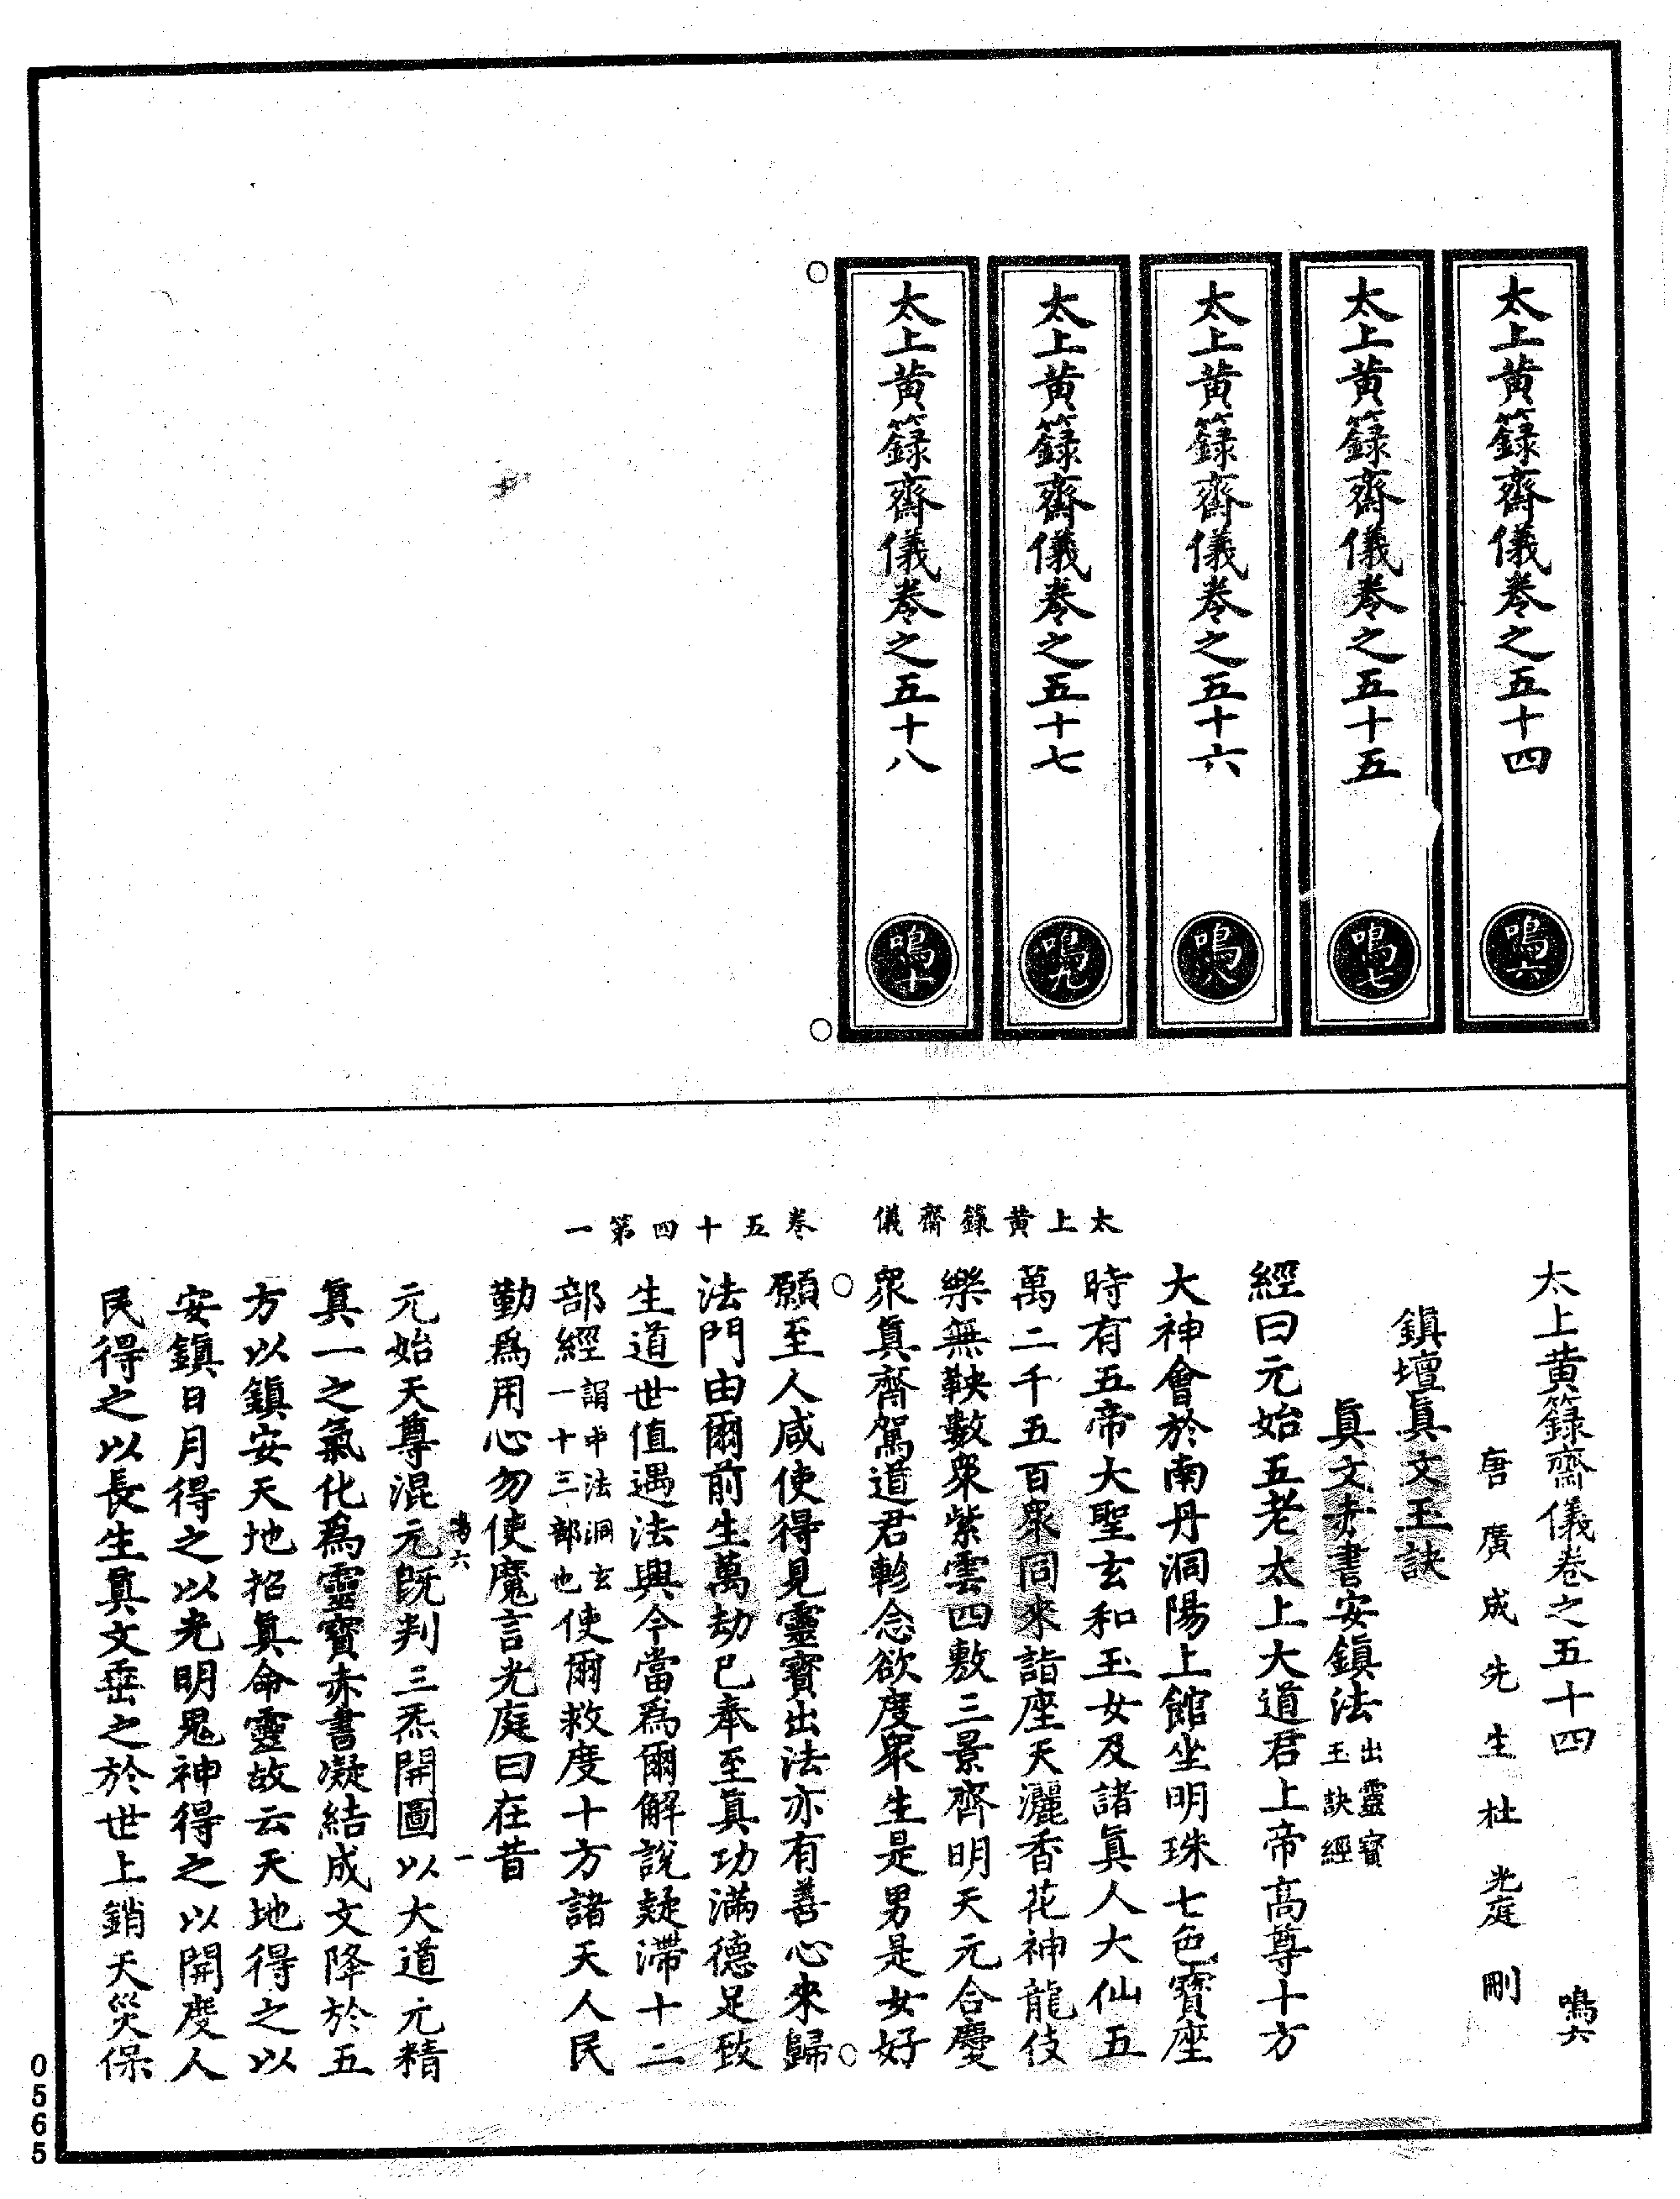 太上黄籙齋儀卷之五十四
鳴六
太上黄籙齋儀卷之五十五
鳴七
太上黄籙齋儀卷之五十六
鳴八
太上黄籙齋儀卷之五十七
鳴九
太上黄籙齋儀卷之五十八
鳴十
太上黄籙齋儀卷之五十四 鳴六
唐廣成先生杜光庭刪
鎮壇眞文玉訣
眞文赤書安鎮法出靈寶玉訣經
經曰元始五老太上大道君上帝高尊十方
大神會於南丹洞陽上館坐明珠七色寶座
時有五帝大聖玄和玉女及諸眞人大仙五
萬二千五百衆同來詣座天灑香花神龍伎
樂無鞅數衆紫雲四敷三景齊明天元合慶
衆眞齊駕道君軫念欲度衆生是男是女好
太上黄籙齋儀 卷五十四第一
願至人咸使得見靈寶出法亦有善心來歸
法門由爾前生萬劫已奉至眞功滿德足致
生道世值遇法興今當爲爾解說疑滯十二
部經謂中法洞玄一十三部也使爾救度十方諸天人民
勤爲用心勿使魔言光庭曰在昔
鳴六 一
元始天尊混元既判三炁開圖以大道元精
眞一之氣化爲靈寶赤書凝結成文降於五
方以鎮安天地招眞命靈故云天地得之以
安鎮日月得之以光明鬼神得之以開度人
民得之以長生眞文垂之於世上銷天災保
0565